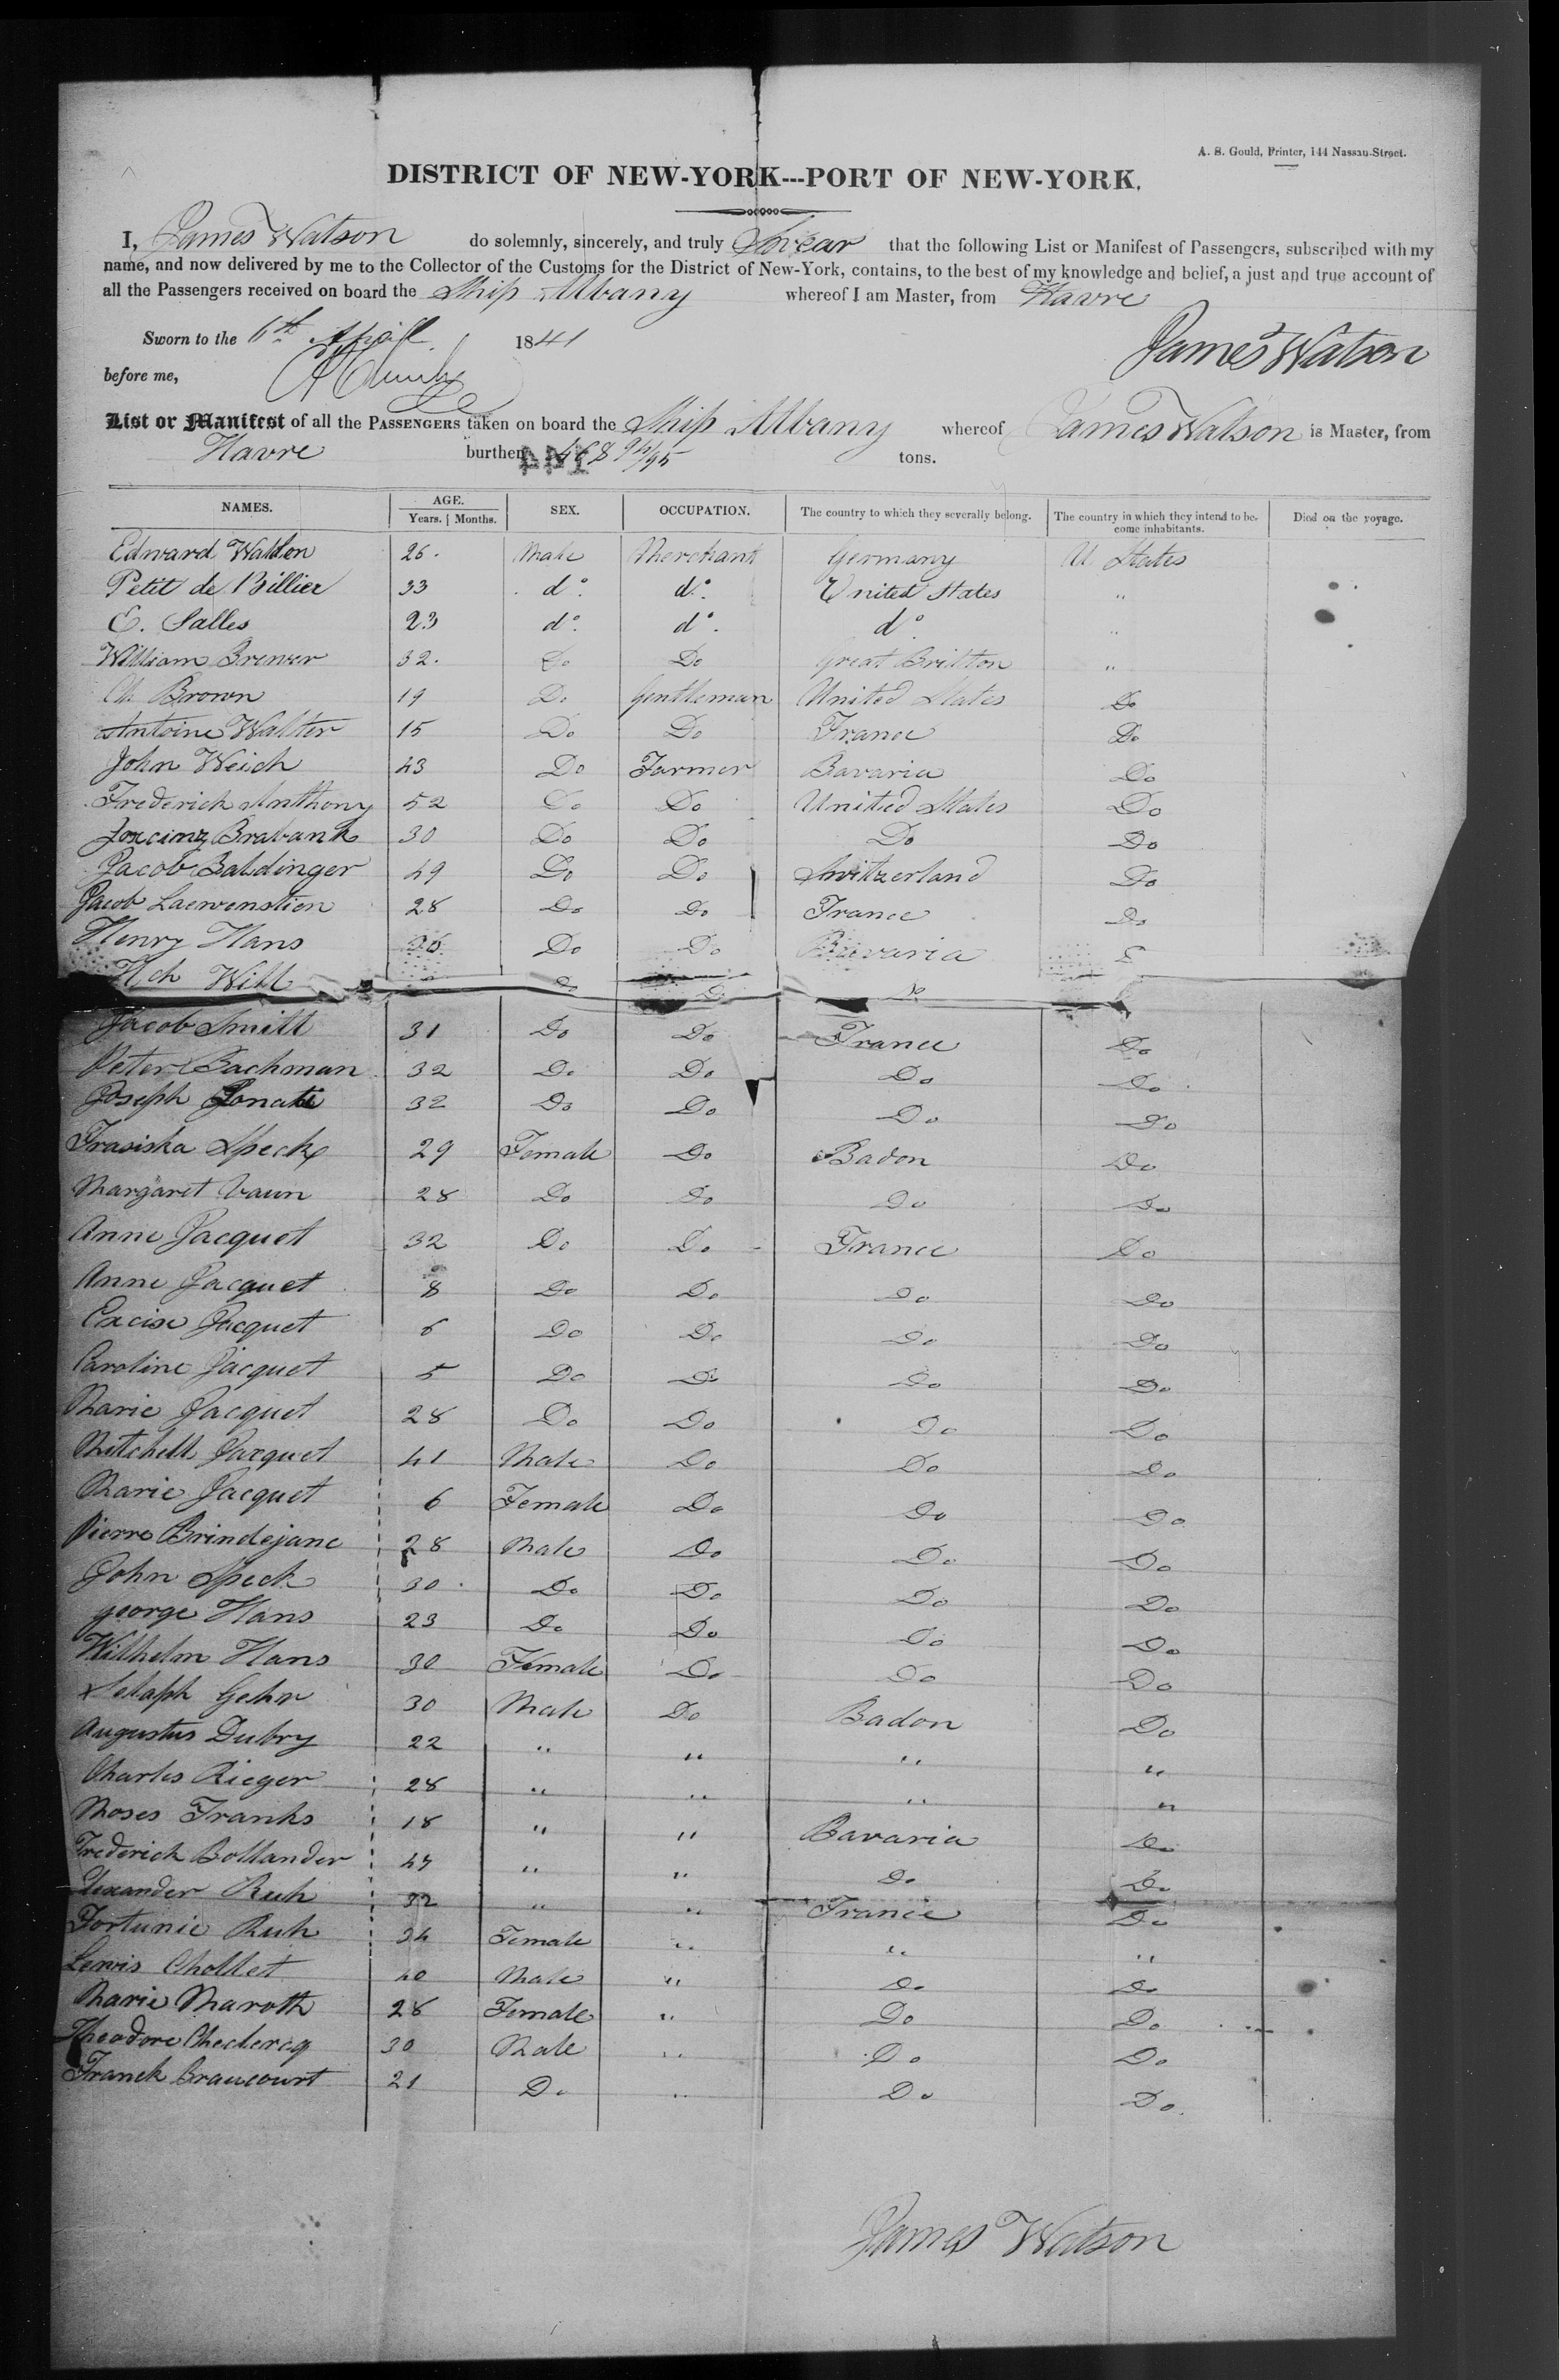 A. S. Gould, Printer, 144 Nassau-Street.
DISTRICT OF NEW-YORK---PORT OF NEW-YORK.
I, James Watson do solemnly, sincerely, and truly Swear that the following List or Manifest of Passengers, subscribed with my
name, and now delivered by me to the Collector of the Customs for the District of New-York, contains, to the best of my knowledge and belief, a just and true account of
all the Passengers received on board the Ship Albany whereof I am Master, from Havre
Sworn to the 6th April 1841
James Watson
before me,
List or Manifest of all the PASSENGERS taken on board the Ship Albany whereof James Watson is Master, from
Havre burthen 468 94/95 tons.
NAMES. AGE. SEX. OCCUPATION. The country to which they severally belong. The country in which they intend to be- Died on the voyage.
Years. Months. come inhabitants.
Edward Walden 26. Male Merchant Germany U. States
Petit de Billier 33 do. do. United States "
E. Salles 23 do. do. do. "
William Brewer 32. Do Do great Britton "
Brown 19 Do Gentleman United States Do
Antoine Walter 15 Do Do France Do
John Weich 43 Do Farmer Bavaria Do
Frederick Anthony 52 Do Do United States Do
Brabank 30 Do Do Do Do
Jacob Baldinger 49 Do Do Switzerland Do
Jacob Laewenstien 28 Do Do France Do
Henry Hans Do Do Bavaria
Will Do
Jacob Smitt 31 Do Do France Do
Peter Bachman 32 Do Do Do Do
Joseph 32 Do Do Do Do
Frasiska Speck 29 Female Do Badon Do
Margaret Vaun 28 Do Do Do Do
Anne Jacquet 32 Do Do France Do
Anne Jacquet 8 Do Do Do Do
Jacquet 6 Do Do Do Do
Caroline Jacquet 5 Do Do Do Do
Marie Jacquet 28 Do Do Do Do
Mitchell Jacquet 41 Male Do Do Do
Marie Jacquet 6 Female Do Do Do
Pierre Brindejanc 28 Male Do Do Do
John Speck 30 Do Do Do Do
george Hans 23 Do Do Do Do
Wilhelm Hans 30 Female Do Do Do
Gehr 30 Male Do Badon Do
Augustus Dubry 22 " " " "
Charles Rieger 28 " " " "
Moses Franks 18 " " Bavaria Do
Frederick Bollander 47 " " Do Do
Alexander Ruh 32 " " France Do
Fortunie Ruh 34 Female " " "
Lewis Chollet 40 Male " Do Do
Marie Maroth 28 Female " Do Do
Theodore Checlercq 30 Male " Do Do
Franck Braucourt 21 Do " Do Do
James Watson